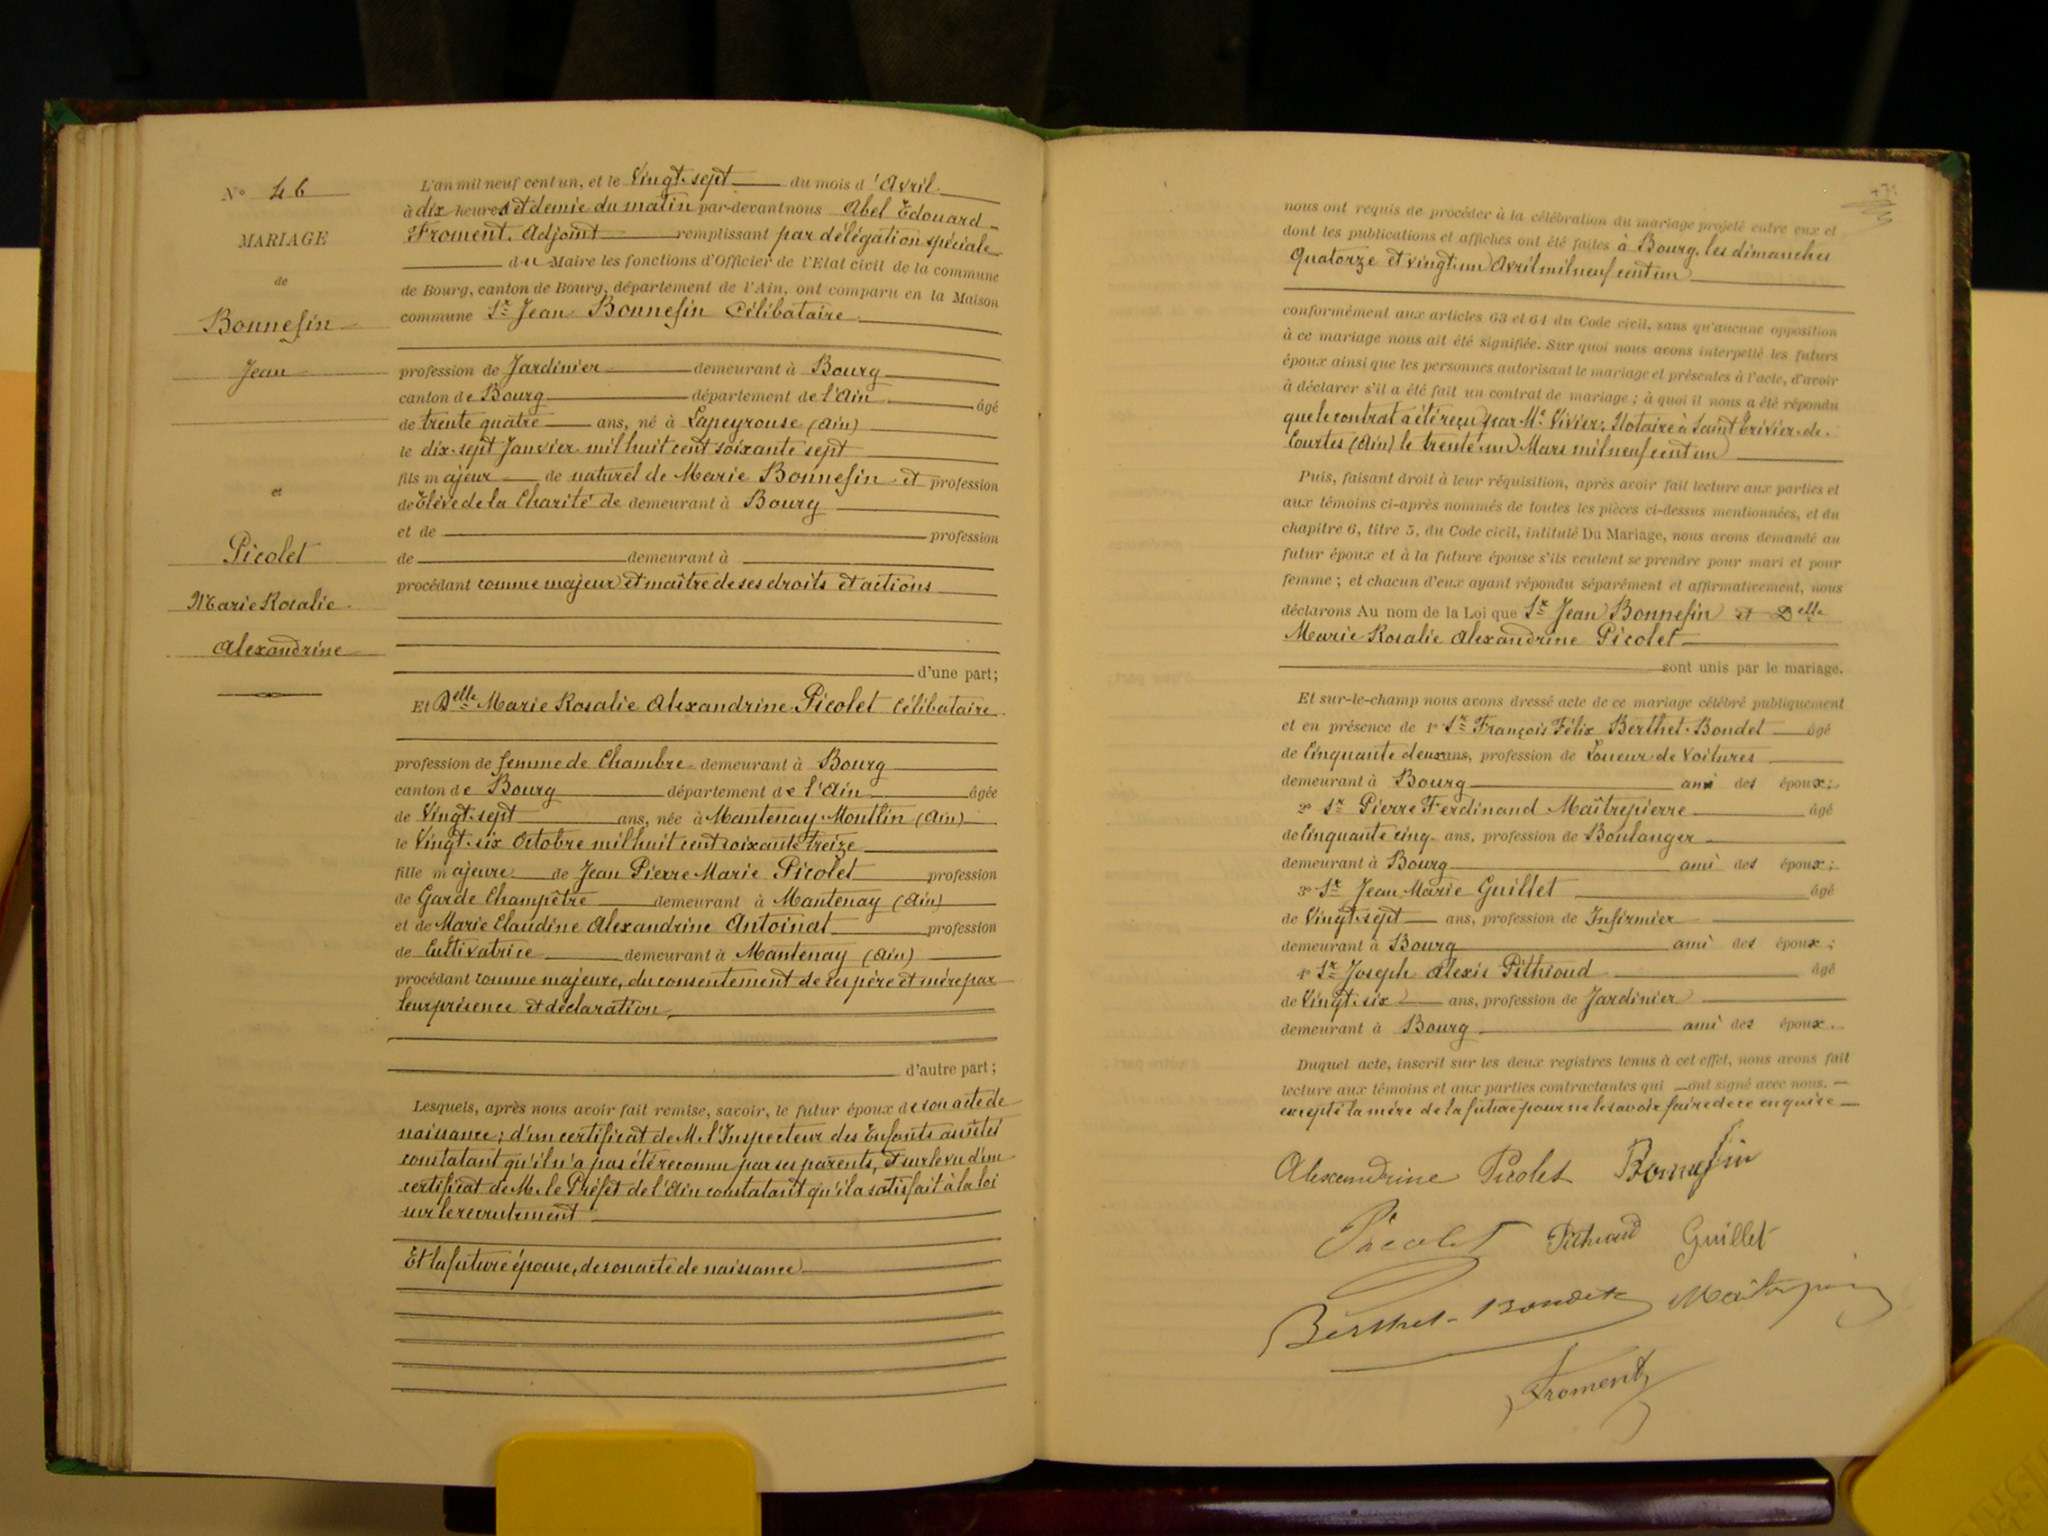 N° 46
MARIAGE
de
Bonnefin
Jean
et
Picolet
Marie Rosalie
Alexandrine
L'an mil neuf cent un, et le Vingt-sept du mois d'Avril
à dix heures et demie du matin par-devant nous Abel Edouard
Froment, Adjoint remplissant par délégation spéciale
du Maire les fonctions d'Officier de l'Etat civil de la commune
de Bourg, canton de Bourg, département de l'Ain, ont comparu en la Maison
commune Sr Jean Bonnefin Célibataire
profession de Jardinier demeurant à Bourg
canton de Bourg département de l'Ain âgé
de trente quatre ans, né à Lapeyrouse (Ain)
le dix-sept Janvier mil huit cent soixante sept
fils majeur de naturel de Marie Bonnefin et profession
de Elève de la Charité de demeurant à Bourg
et de profession
de demeurant à
procédant comme majeur et maître de ses droits et actions
d'une part;
Et Delle Marie Rosalie Alexandrine Picolet Célibataire
profession de femme de Chambre demeurant à Bourg
canton de Bourg département de l'Ain âgée
de Vingt-sept ans, née à Mantenay-Montlin (Ain)
le Vingt-six Octobre mil huit cent soixante treize
fille majeure de Jean Pierre Marie Picolet profession
de Garde Champêtre demeurant à Mantenay (Ain)
et de Marie Claudine Alexandrine Antoinat profession
de Cultivatrice demeurant à Mantenay (Ain)
procédant comme majeure, du consentement de ses père et mère par
leur présence et déclaration
d'autre part;
Lesquels, après nous avoir fait remise, savoir, le futur époux de son acte de
naissance; d'un certificat de M. l'Inspecteur des Enfants assistés
constatant qu'il n'a pas été reconnu par ses parents, et sur le vu d'un
certificat de M. le Préfet de l'Ain constatant qu'il a satisfait à la loi
sur le recrutement
Et la future épouse, de son acte de naissance
nous ont requis de procéder à la célébration du mariage projeté entre eux et
dont les publications et affiches ont été faites à Bourg, les dimanches
Quatorze et vingt un Avril mil neuf cent un
conformément aux articles 63 et 64 du Code civil, sans qu'aucune opposition
à ce mariage nous ait été signifiée. Sur quoi nous avons interpellé les futurs
époux ainsi que les personnes autorisant le mariage et présentes à l'acte, d'avoir
à déclarer s'il a été fait un contrat de mariage; à quoi il nous a été répondu
que le contrat a été reçu par Me Vivier, Notaire à Saint Trivier-de-
Courtes (Ain) le trente un Mars mil neuf cent un
Puis, faisant droit à leur réquisition, après avoir fait lecture aux parties et
aux témoins ci-après nommés de toutes les pièces ci-dessus mentionnées, et du
chapitre 6, titre 5, du Code civil, intitulé Du Mariage, nous avons demandé au
futur époux et à la future épouse s'ils veulent se prendre pour mari et pour
femme; et chacun d'eux ayant répondu séparément et affirmativement, nous
déclarons Au nom de la Loi que Sr Jean Bonnefin et Delle
Marie Rosalie Alexandrine Picolet
sont unis par le mariage.
Et sur-le-champ nous avons dressé acte de ce mariage célébré publiquement
et en présence de 1° Sr François Félix Berthet-Bondet âgé
de Cinquante deux ans, profession de Loueur de Voitures
demeurant à Bourg ami des époux;
2° Sr Pierre Ferdinand Maîtrepierre âgé
de Cinquante cinq ans, profession de Boulanger
demeurant à Bourg ami des époux;
3° Sr Jean Marie Guillet âgé
de Vingt-sept ans, profession de Infirmier
demeurant à Bourg ami des époux;
4° Sr Joseph Alexis Pithioud âgé
de Vingt-six ans, profession de Jardinier
demeurant à Bourg ami des époux.
Duquel acte, inscrit sur les deux registres tenus à cet effet, nous avons fait
lecture aux témoins et aux parties contractantes qui ont signé avec nous.
excepté la mère de la future pour ne le savoir faire de ce enquise
Alexandrine Picolet Bonnefin
Picolet Pithioud Guillet
Berthet-Bondet Maîtrepierre
Froment